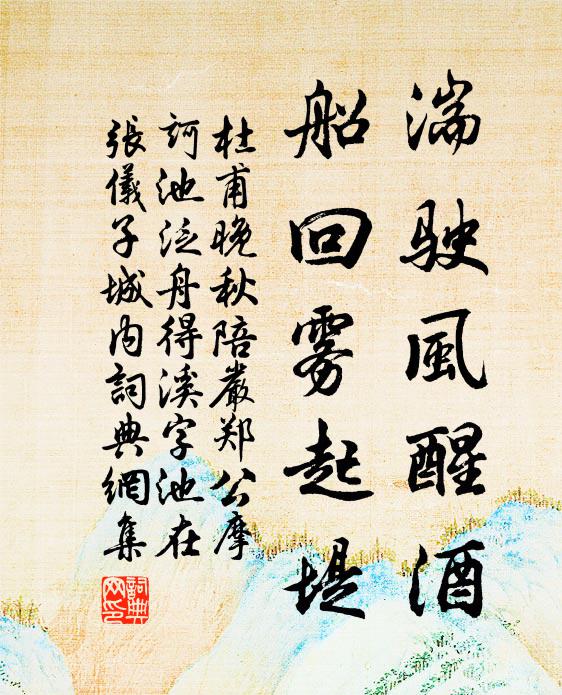 湍駛風醒酒
船回雾起堤
杜甫晚秋陪嚴郑公摩
訶池泛舟得溪字池在
張儀子城内詞典網集
詞典网印